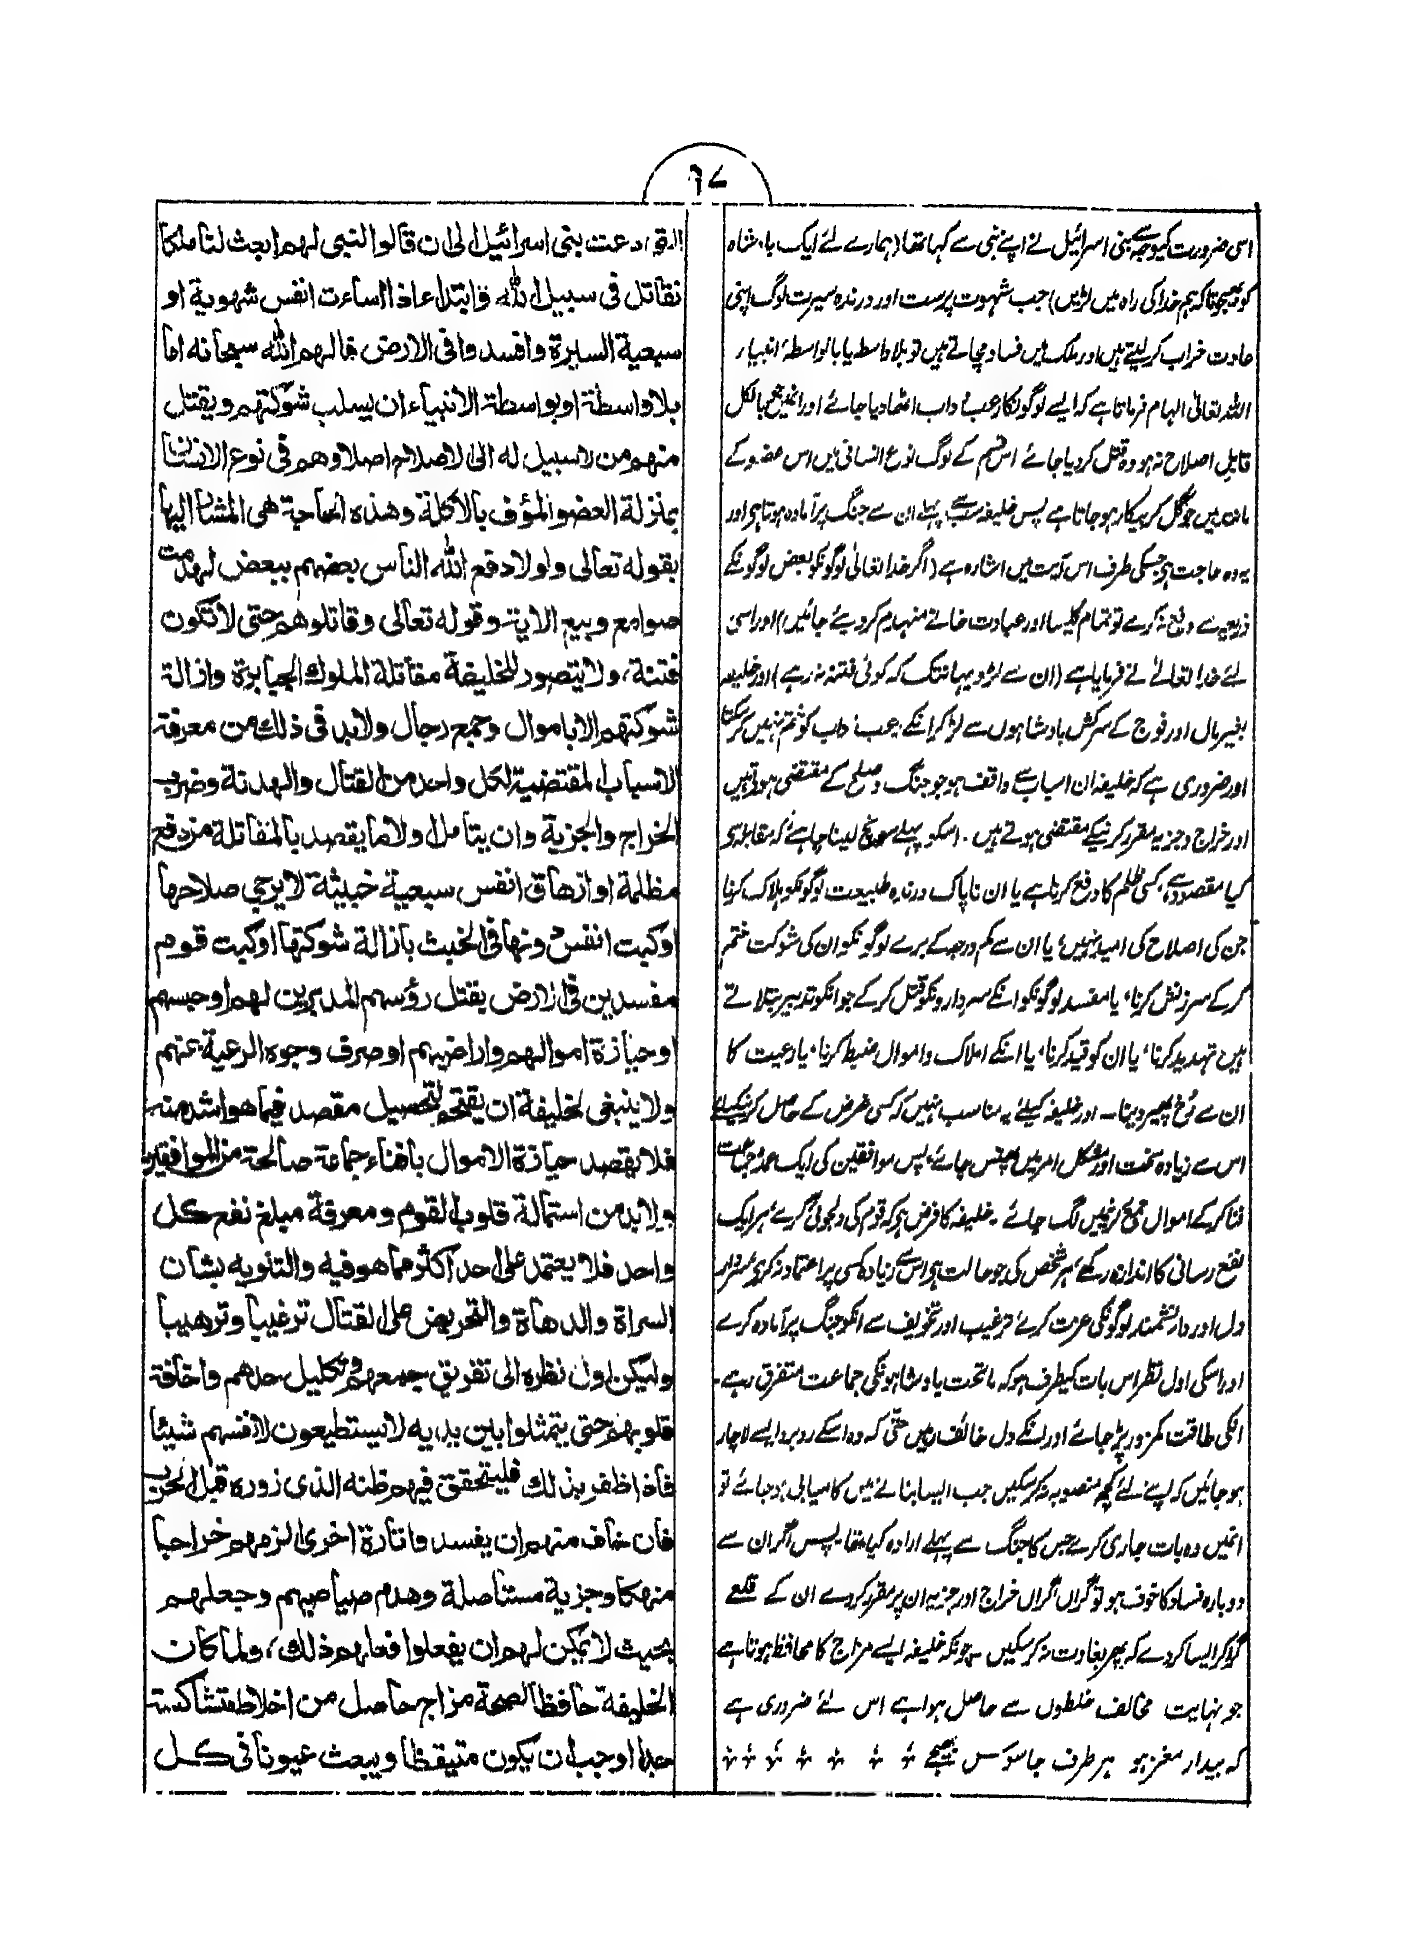 ۹۷
اسی ضرورت کیوجہ سے بنی اسرائیل نے اپنے نبی سے کہا تھا (ہمارے لئے ایک بادشاہ
کو بھیجو تاکہ ہم خدا کی راہ میں لڑیں) جب شہوت پرست اور درندہ سیرت لوگ اپنی
عادت خراب کر لیتے ہیں اور ملک میں فساد مچاتے ہیں تو بلا واسطہ یا بالواسطۂ انبیار
اللہ تعالیٰ الہام فرماتا ہے کہ ایسے لوگونکا رعب داب اٹھا دیا جائے اور انمیں جو بالکل
قابل اصلاح نہ ہو وہ قتل کر دیا جائے اس قسم کے لوگ نوع انسانی میں اس عضو کے
مانند ہیں جو گل کر بیکار ہو جاتا ہے پس خلیفہ سب سے پہلے ان سے جنگ پر آمادہ ہوتا ہے اور
یہ وہ حاجت ہے جسکی طرف اس آیت میں اشارہ ہے (اگر خدا تعالیٰ لوگونکو بعض لوگونکے
ذریعہ سے دفع نہ کرے تو تمام کلیسا اور عبادت خانے منہدم کر دیئے جائیں) اور اسی
لئے خدا تعالےٰ نے فرمایا ہے (ان سے لڑو یہانتک کہ کوئی فتنہ نہ رہے) اور خلیفہ
بغیر مال اور فوج کے سرکش بادشاہوں سے لڑ کر انکے رعب داب کو ختم نہیں کر سکتا
اور ضروری ہے کہ خلیفہ ان اسباب سے واقف ہو جو جنگ و صلح کے مقتضی ہوتے ہیں
اور خراج و جزیہ مقرر کرنیکے مقتضی ہوتے ہیں۔ اسکو پہلے سوچ لینا چاہئے کہ مقابلہ سے
کیا مقصود ہے، کسی ظلم کا دفع کرنا ہے یا ان ناپاک درندہ طبیعت لوگونکو ہلاک کرنا
جن کی اصلاح کی امید نہیں، یا ان سے کم درجہ کے برے لوگونکو ان کی شوکت ختم
کر کے سرزنش کرنا، یا مفسد لوگونکو انکے سردارونکو قتل کر کے جو انکو تدبیر بتلاتے
ہیں تہدید کرنا، یا ان کو قید کرنا، یا انکے املاک و اموال ضبط کرنا، یا رعیت کا
ان سے رُخ پھیر دینا۔ اور خلیفہ کیلئے یہ مناسب نہیں کہ کسی غرض کے حاصل کرنیکیلئے
اس سے زیادہ سخت اور مشکل امر میں پھنس جائے، پس موافقین کی ایک عمدہ جماعت
فنا کر کے اموال جمع کرنے میں لگ جائے۔ خلیفہ کا فرض ہے کہ قوم کی دلجوئی کرے ہر ایک
نفع رسانی کا اندازہ رکھے ہر شخص کی جو حالت ہے اس سے زیادہ کسی پر اعتماد نہ کرے سردار
دل اور دانشمند لوگونکی عزت کرے ترغیب اور تخویف سے انکو جنگ پر آمادہ کرے
اور اسکی اول نظر اس بات کیطرف ہو کہ ماتحت بادشاہونکی جماعت متفرق رہے
انکی طاقت کمزور پڑ جائے اور انکے دل خائف رہیں حتّٰی کہ وہ اسکے روبرو ایسے لاچار
ہو جائیں کہ اپنے لئے کچھ منصوبہ نہ کر سکیں جب ایسا بنانے میں کامیابی ہو جائے تو
انمیں وہ بات جاری کرے جس کا جنگ سے پہلے ارادہ کیا تھا۔ پس اگر ان سے
دوبارہ فساد کا خوف ہو تو گراں گراں خراج اور جزیہ ان پر مقرر کر دے ان کے قلعے
گرا کر ایسا کر دے کہ پھر بغاوت نہ کر سکیں۔ چونکہ خلیفہ ایسے مزاج کا محافظ ہوتا ہے
جو نہایت مخالف خلطوں سے حاصل ہوا ہے اس لئے ضروری ہے
کہ بیدار مغز ہو ہر طرف جاسوس بھیجے
دعت بنی اسرائیل الی ان قالوا لنبی لہم ابعث لنا ملکا
نقاتل فی سبیل اللہ وابتداء اذا اساءت انفس شہویة او
سبعیة السیرة وافسدوا فی الارض فالہم اللہ سبحانہ اما
بلا واسطة او بواسطة الانبیاء ان یسلب شوکتہم ویقتل
منہم من لا سبیل لہ الی الاصلاح اصلا وھم فی نوع الانسان
بمنزلة العضو المؤف بالاکلة وھذہ الحاجة ھی المشار الیہا
بقولہ تعالی ولولا دفع اللہ الناس بعضہم ببعض لہدمت
صوامع وبیع الایة وقولہ تعالی وقاتلوھم حتی لا تکون
فتنة، ولا یتصور للخلیفة مقاتلة الملوک الجبابرة وازالة
شوکتہم الا باموال وجمع رجال ولا بد فی ذلک من معرفة
الاسباب المقتضیة لکل واحد من القتال والہدنة وضرب
الخراج والجزیة وان یتامل اولا ما یقصد بالمقاتلة من دفع
مظلمة او ازھاق انفس سبعیة خبیثة لا یرجی صلاحہا
او کبت انفس دونہا فی الخبث بازالة شوکتہا او کبت قوم
مفسدین فی الارض بقتل رؤسہم المدبرین لہم او حبسہم
او حیازة اموالہم واراضیہم او صرف وجوہ الرعیة عنہم
ولا ینبغی لخلیفة ان یقتحم لتحصیل مقصد فیما ھو اشد منہ
فلا یقصد حیازة الاموال بافناء جماعة صالحة من الموافقین
ولا بد من استمالة قلوب القوم ومعرفة مبلغ نفع کل
واحد فلا یعتمد علی احد اکثر مما ھو فیہ والتنویہ بشان
السراة والدھاة والتحریض علی القتال ترغیبا وترھیبا
ولیکن اول نظرہ الی تفریق جمعہم وتکلیل حدھم واخافة
قلوبہم حتی یتمثلوا بین یدیہ لا یستطیعون لانفسہم شیئا
فاذا ظفر بذلک فلیتحقق فیہم ظنہ الذی زورہ قبل الحرب
فان خاف منہم ان یفسدوا تارة اخری الزمہم خراجا
منہکا وجزیة مستاصلة وھدم صیاصیہم وجعلہم
بحیث لا یمکن لہم ان یفعلوا فعلہم ذلک، ولما کان
الخلیفة حافظا لصحة مزاج حاصل من اخلاط متشاکسة
جدا اوجب ان یکون متیقظا ویبعث عیونا فی کل